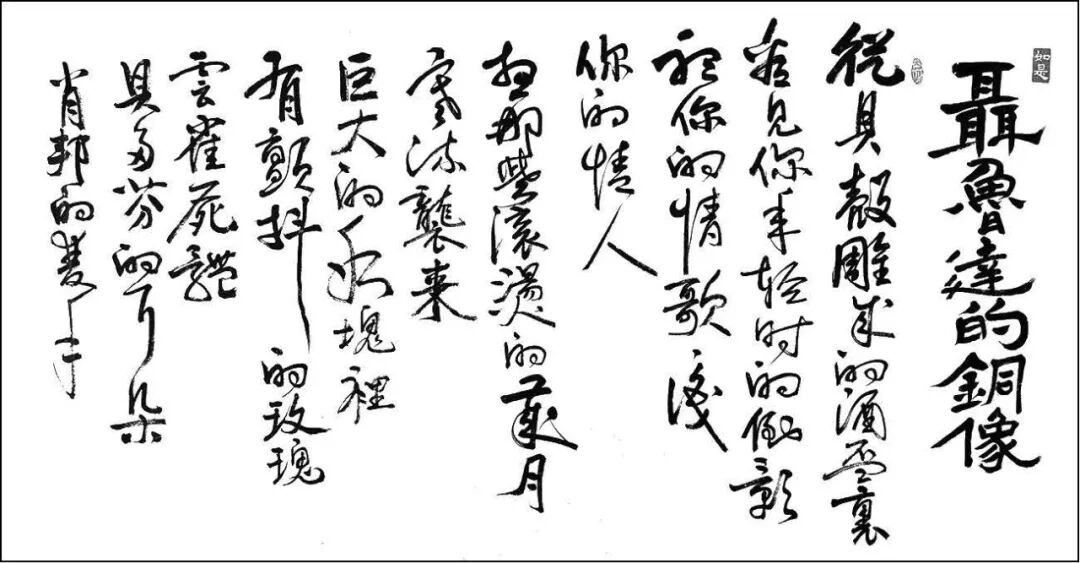 如是
聶魯達的銅像
從貝殼雕成的酒盃裏
看見你年轻时的倒影
你的情歌
你的情人
那些滾燙的歲月
寒流襲來
巨大的冰塊裡
有顫抖的玫瑰
雲雀屍體
貝多芬的耳朵
肖邦的雙手